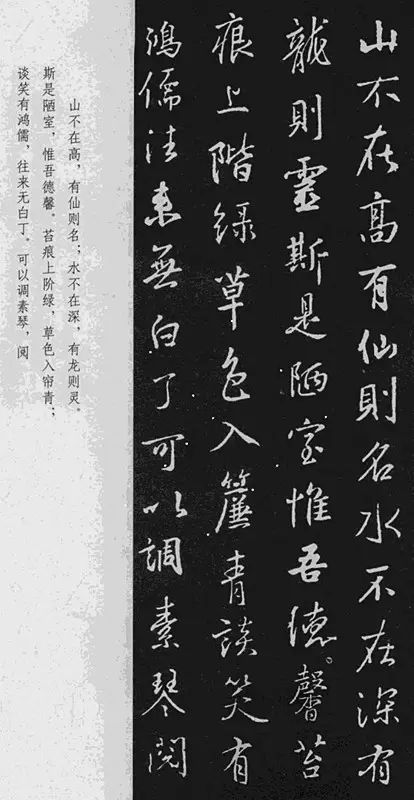 山不在高有仙則名水不在深有
龍則靈斯是陋室惟吾德馨苔
痕上階緑草色入簾青談笑有
鴻儒往来無白丁可以調素琴閲
山不在高，有仙则名；水不在深，有龙则灵。
斯是陋室，惟吾德馨。苔痕上阶绿，草色入帘青；
谈笑有鸿儒，往来无白丁。可以调素琴，阅